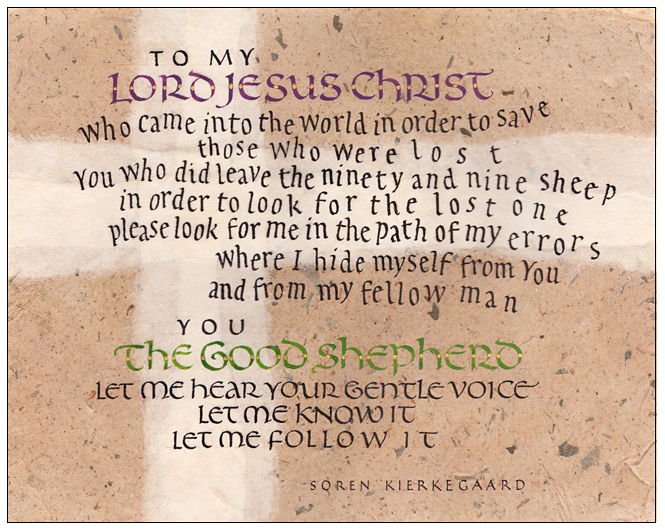 TO MY
LORD JESUS CHRIST
who came into the world in order to save
those who were lost
You who did leave the ninety and nine sheep
in order to look for the lost one
please look for me in the path of my errors
where I hide myself from You
and from my fellow man
YOU
THE GOOD SHEPHERD
LET ME HEAR YOUR GENTLE VOICE
LET ME KNOW IT
LET ME FOLLOW IT
SOREN KIERKEGAARD